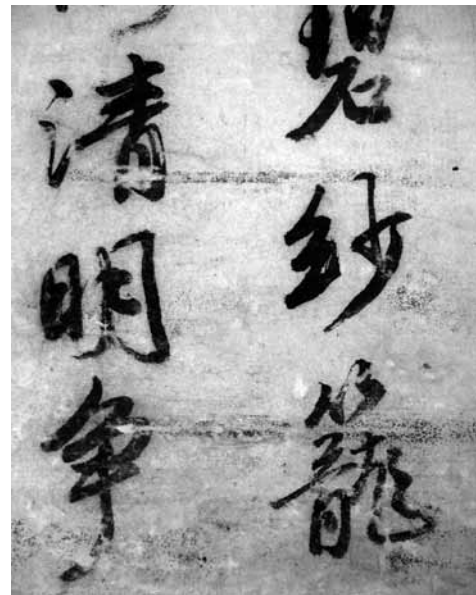 碧紗籠
清明争